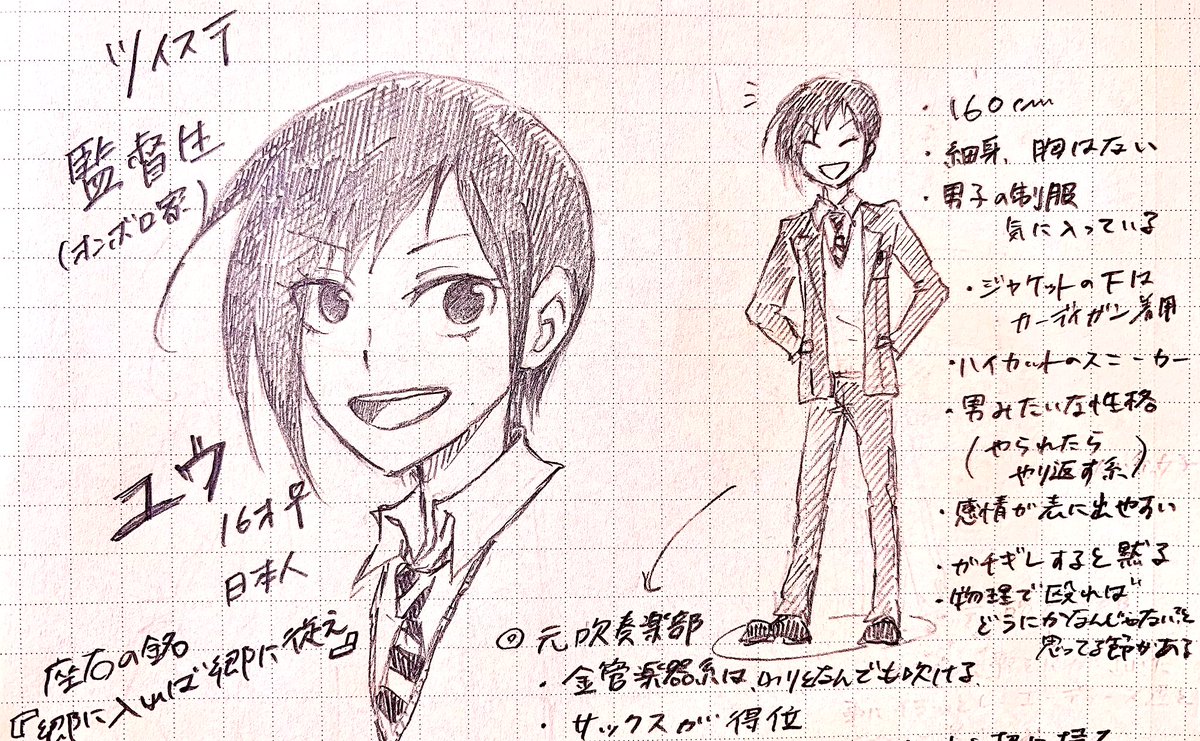 ツイステ
監督生
(オンボロ寮)
ユウ
16才♀
日本人
座右の銘
『郷に入れば郷に従え』
・160cm
・細身、胸はない
・男子の制服
気に入っている
・ジャケットの下は
カーディガン着用
・ハイカットのスニーカー
・男みたいな性格
(やられたら
やり返す系)
・感情が表に出やすい
・ガチギレすると黙る
・物理で殴れば
どうにかなんじゃない?と
思ってる節がある
◎元吹奏楽部
・金管楽器系は、わりとなんでも吹ける
・サックスが得位